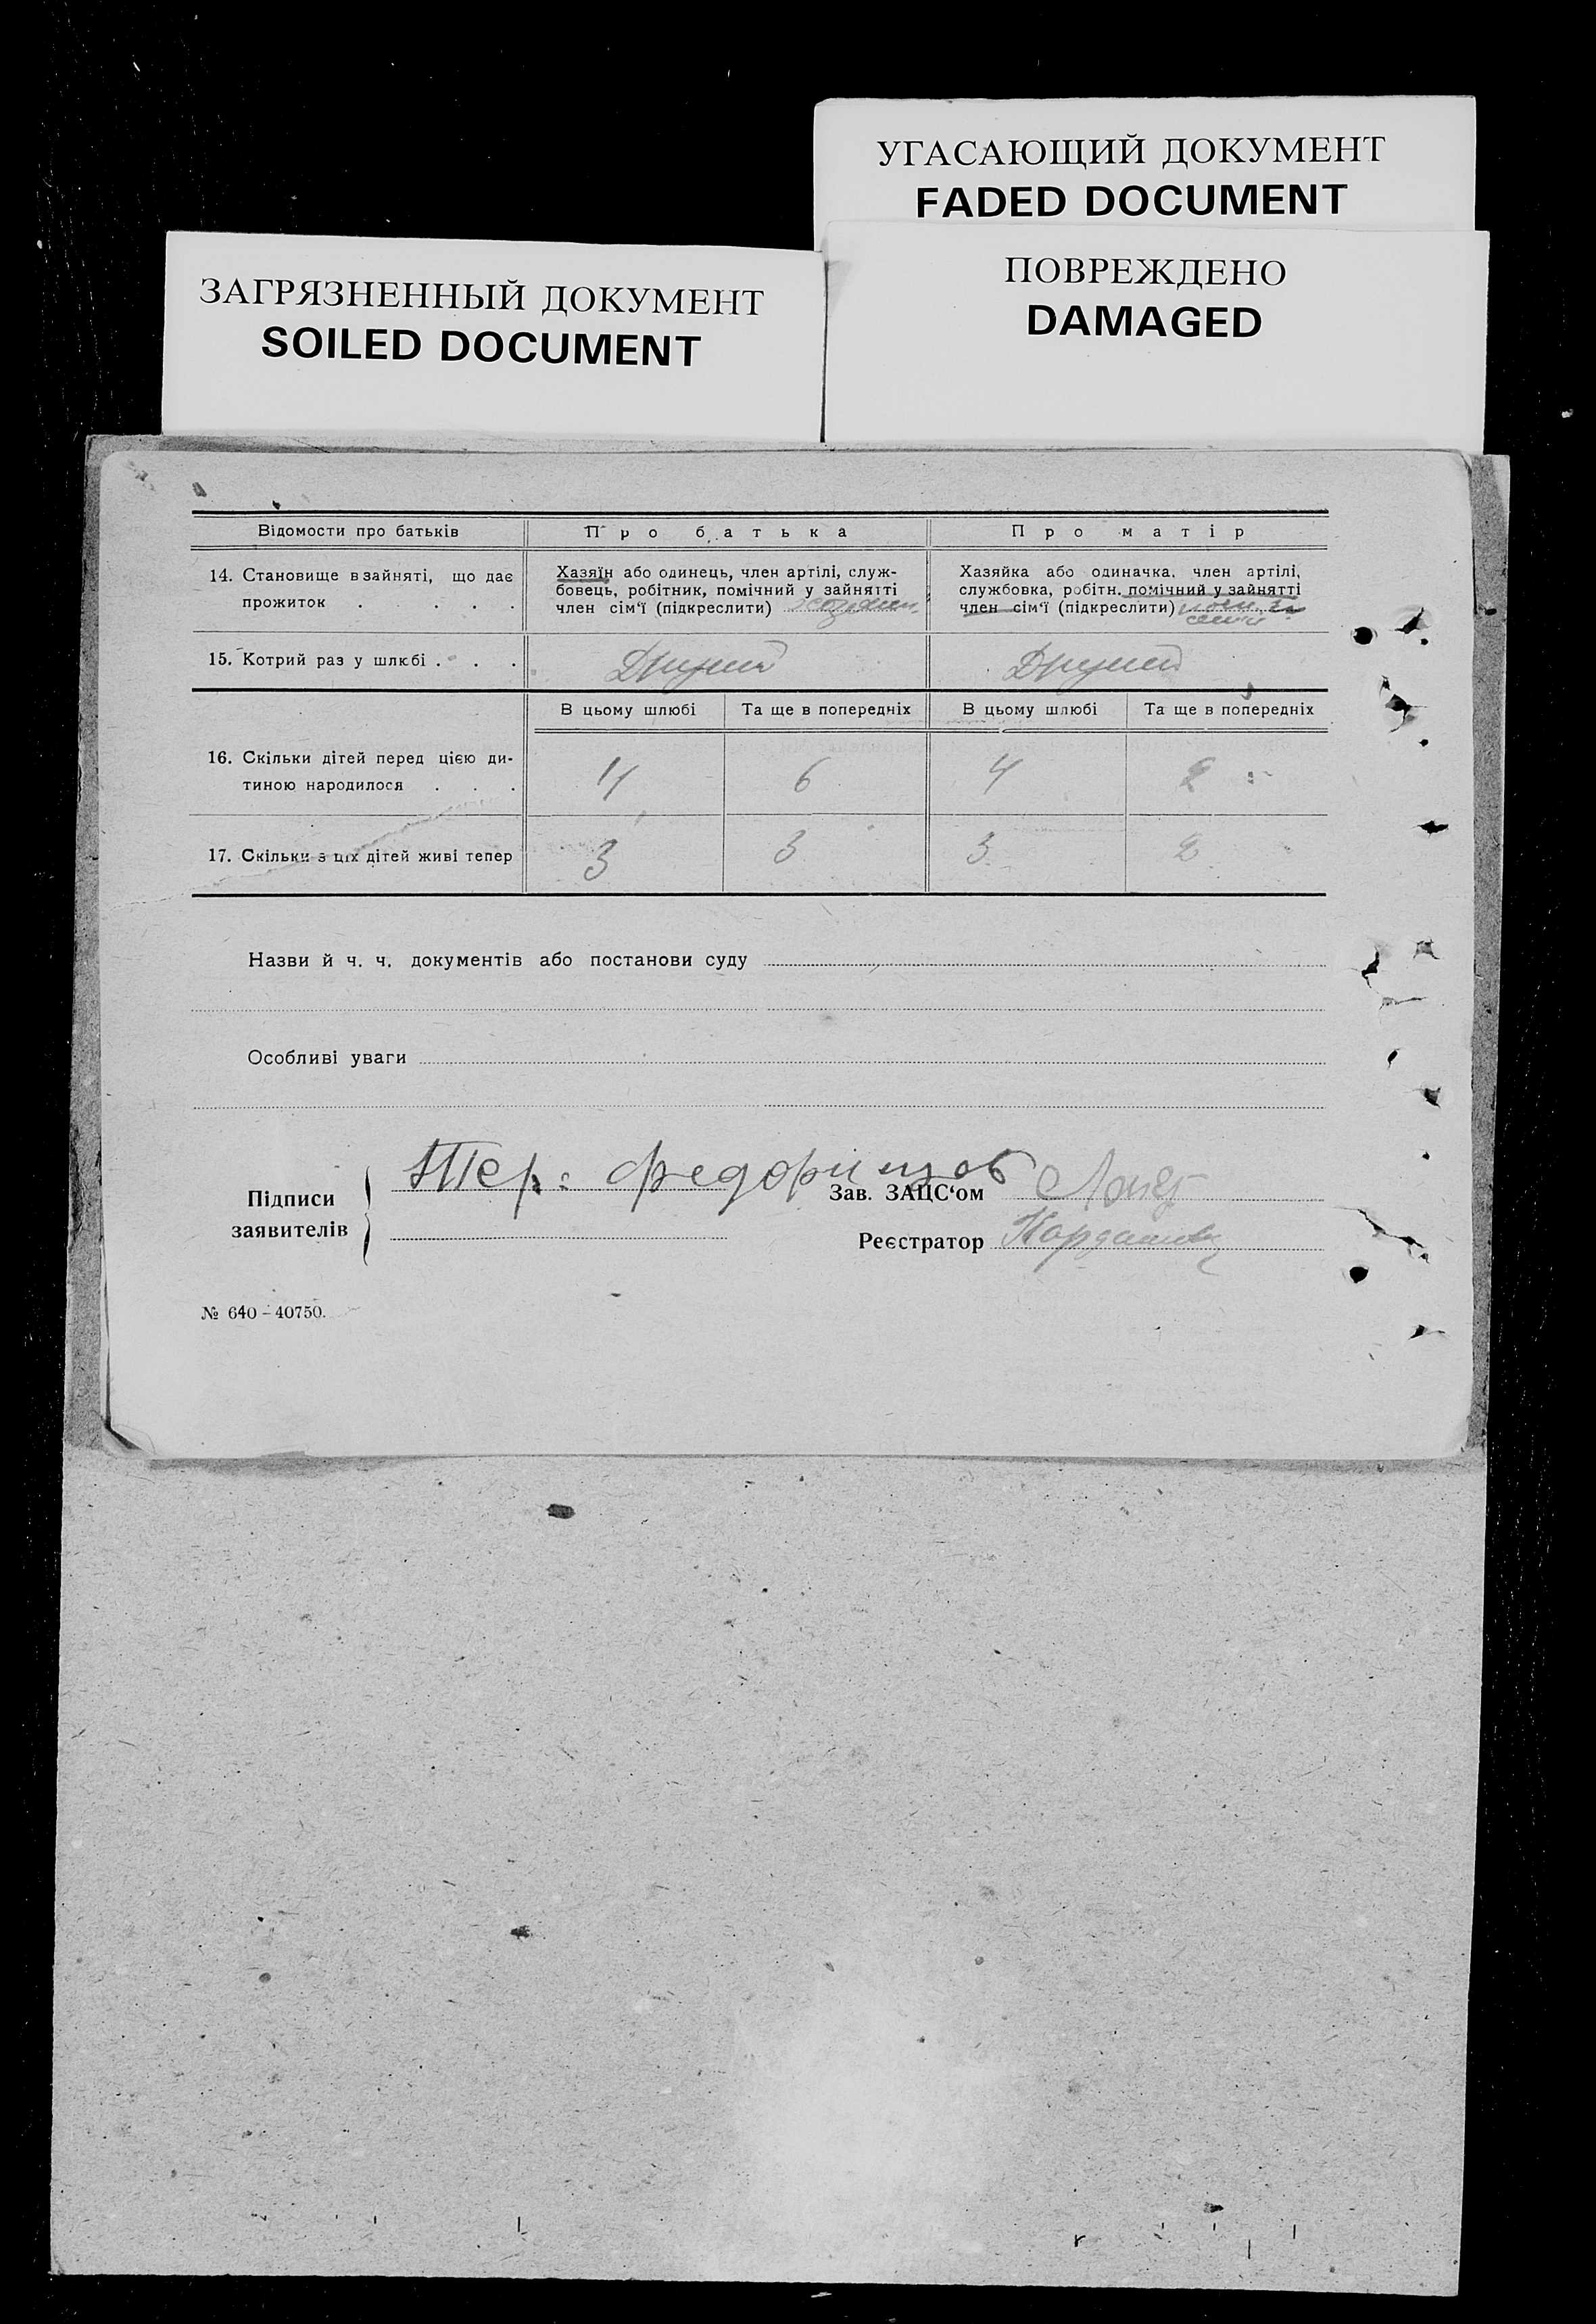 УГАСАЮЩИЙ ДОКУМЕНТ
FADED DOCUMENT
ПОВРЕЖДЕНО
DAMAGED
ЗАГРЯЗНЕННЫЙ ДОКУМЕНТ
SOILED DOCUMENT
Відомости про батьків Про батька Про матір
14. Становище в зайняті, що дає
прожиток . . . . .
Хазяїн або одинець, член артілі, служ-
бовець, робітник, помічний у зайнятті
член сім'ї (підкреслити)
Хазяйка або одиначка, член артілі,
службовка, робітн. помічний у зайнятті
член сім'ї (підкреслити)
15. Котрий раз у шлюбі . . . Другий Другий
В цьому шлюбі Та ще в попередніх В цьому шлюбі Та ще в попередніх
16. Скільки дітей перед цією ди-
тиною народилося . . . 4 6 4 2
17. Скільки з ціх дітей живі тепер 3 3 3 2
Назви й ч. ч. документів або постанови суду
Особливі уваги
Підписи
заявителів
Зав. ЗАЦС'ом
Реєстратор
№ 640-40750.